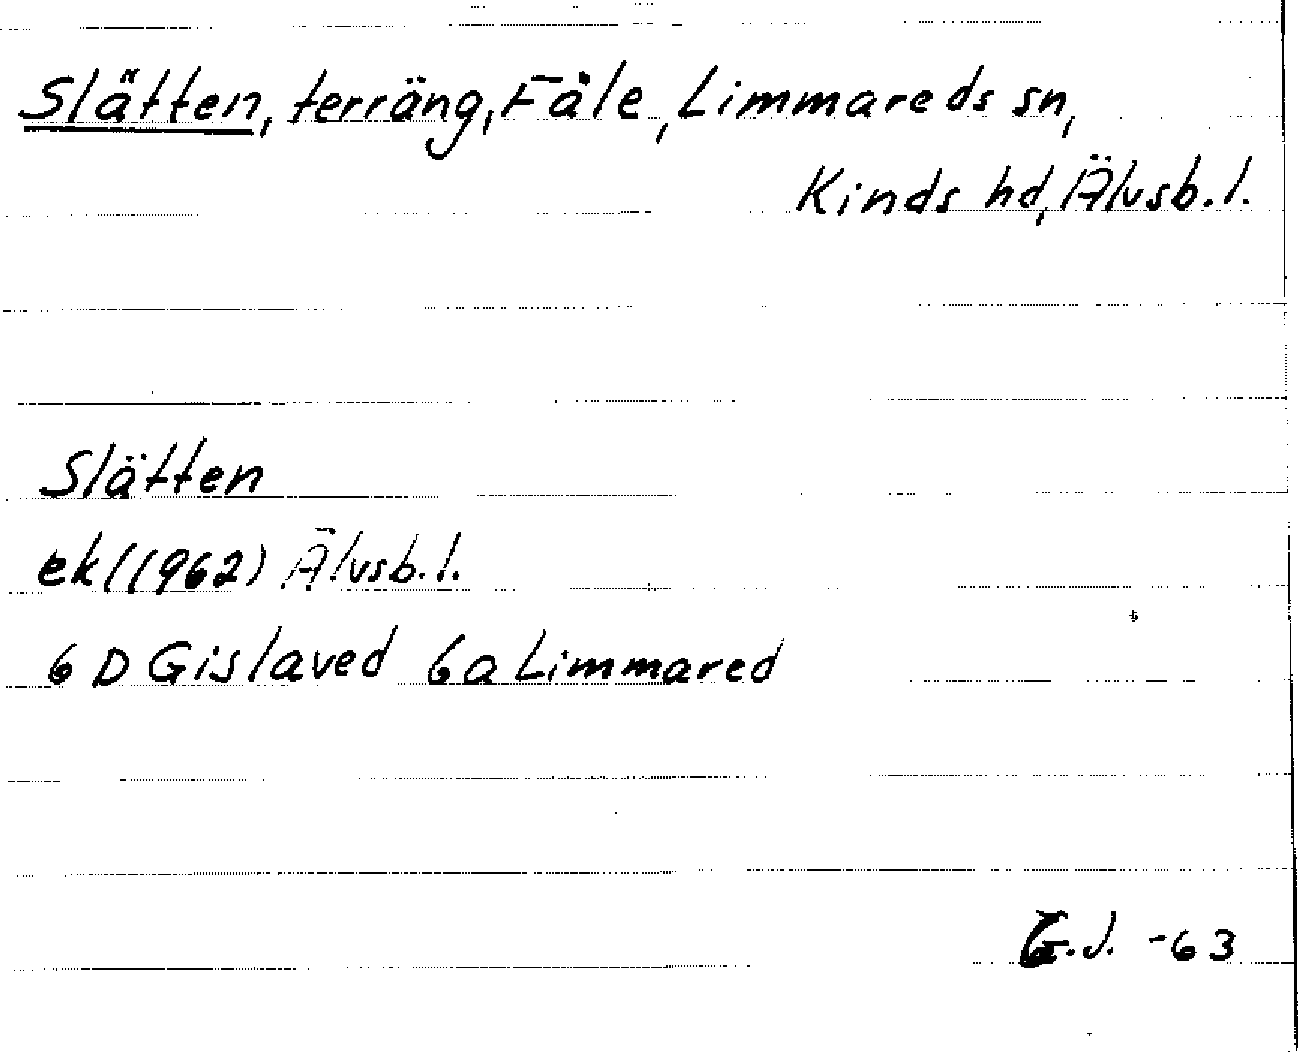 Slätten, terräng, Fåle, Limmareds sn,
Kinds hd, Älvsb. l.
Slätten
ek ((1962) Älvsb. l.
6 D Gislaved 6a Limmared
G.J. -63